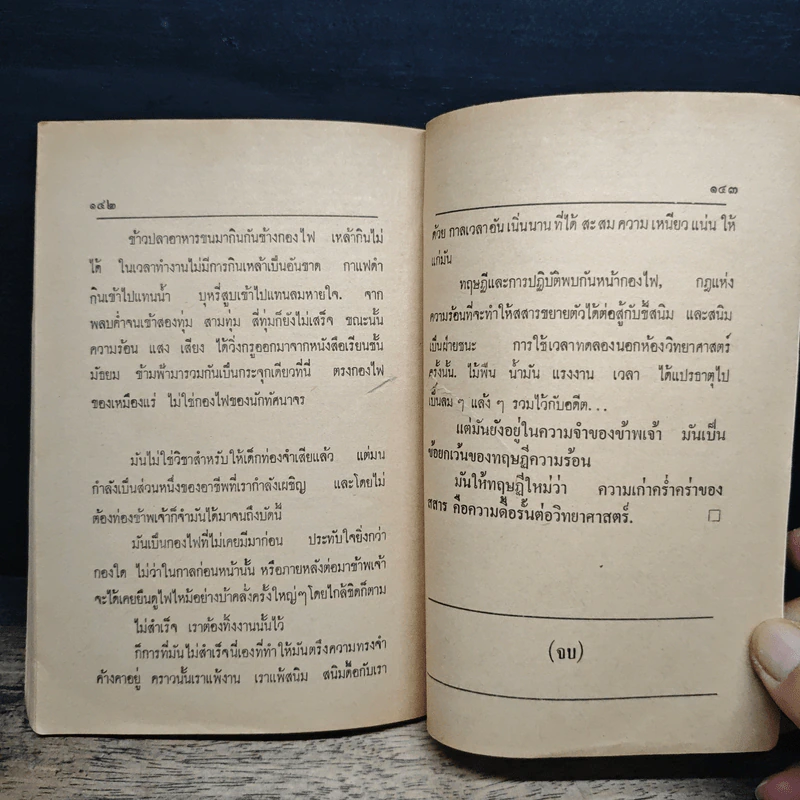 ๑๔๒
ข้าวปลาอาหารขนมากินกันข้างกองไฟ เหล้ากินไม่
ได้ ในเวลาทำงานไม่มีการกินเหล้าเป็นอันขาด กาแฟดำ
กินเข้าไปแทนน้ำ บุหรี่สูบเข้าไปแทนลมหายใจ. จาก
พลบค่ำจนเข้าสองทุ่ม สามทุ่ม สี่ทุ่มก็ยังไม่เสร็จ ขณะนั้น
ความร้อน แสง เสียง ได้วิ่งกรูออกมาจากหนังสือเรียนชั้น
มัธยม ข้ามฟ้ามารวมกันเป็นกระจุกเดียวที่นี่ ตรงกองไฟ
ของเหมืองแร่ ไม่ใช่กองไฟของนักทัศนาจร
มันไม่ใช่วิชาสำหรับให้เด็กท่องจำเสียแล้ว แต่มน
กำลังเป็นส่วนหนึ่งของอาชีพที่เรากำลังเผชิญ และโดยไม่
ต้องท่องข้าพเจ้าก็จำมันได้มาจนถึงบัดนี้
มันเป็นกองไฟที่ไม่เคยมีมาก่อน ประทับใจยิ่งกว่า
กองใด ไม่ว่าในกาลก่อนหน้านั้น หรือภายหลังต่อมาข้าพเจ้า
จะได้เคยยืนดูไฟไหม้อย่างบ้าคลั่งครั้งใหญ่ๆโดยใกล้ชิดก็ตาม
ไม่สำเร็จ เราต้องทิ้งงานนั้นไว้
ก็การที่มันไม่สำเร็จนี่เองที่ทำให้มันตรึงความทรงจำ
ค้างคาอยู่ คราวนั้นเราแพ้งาน เราแพ้สนิม สนิมดื้อกับเรา
๑๔๓
ด้วย กาลเวลา อัน เนิ่นนาน ที่ได้ สะ สม ความ เหนียว แน่น ให้
แก่มัน
ทฤษฎีและการปฏิบัติพบกันหน้ากองไฟ, กฎแห่ง
ความร้อนที่จะทำให้สสารขยายตัวได้ต่อสู้กับขี้สนิม และสนิม
เป็นฝ่ายชนะ การใช้เวลาทดลองนอกห้องวิทยาศาสตร์
ครั้งนั้น. ไม้ฟืน น้ำมัน แรงงาน เวลา ได้แปรธาตุไป
เป็นลม ๆ แล้ง ๆ รวมไว้กับอดีต...
แต่มันยังอยู่ในความจำของข้าพเจ้า มันเป็น
ข้อยกเว้นของทฤษฎีความร้อน
มันให้ทฤษฎีใหม่ว่า ความเก่าคร่ำคร่าของ
สสาร คือความดื้อรั้นต่อวิทยาศาสตร์. □
(จบ)